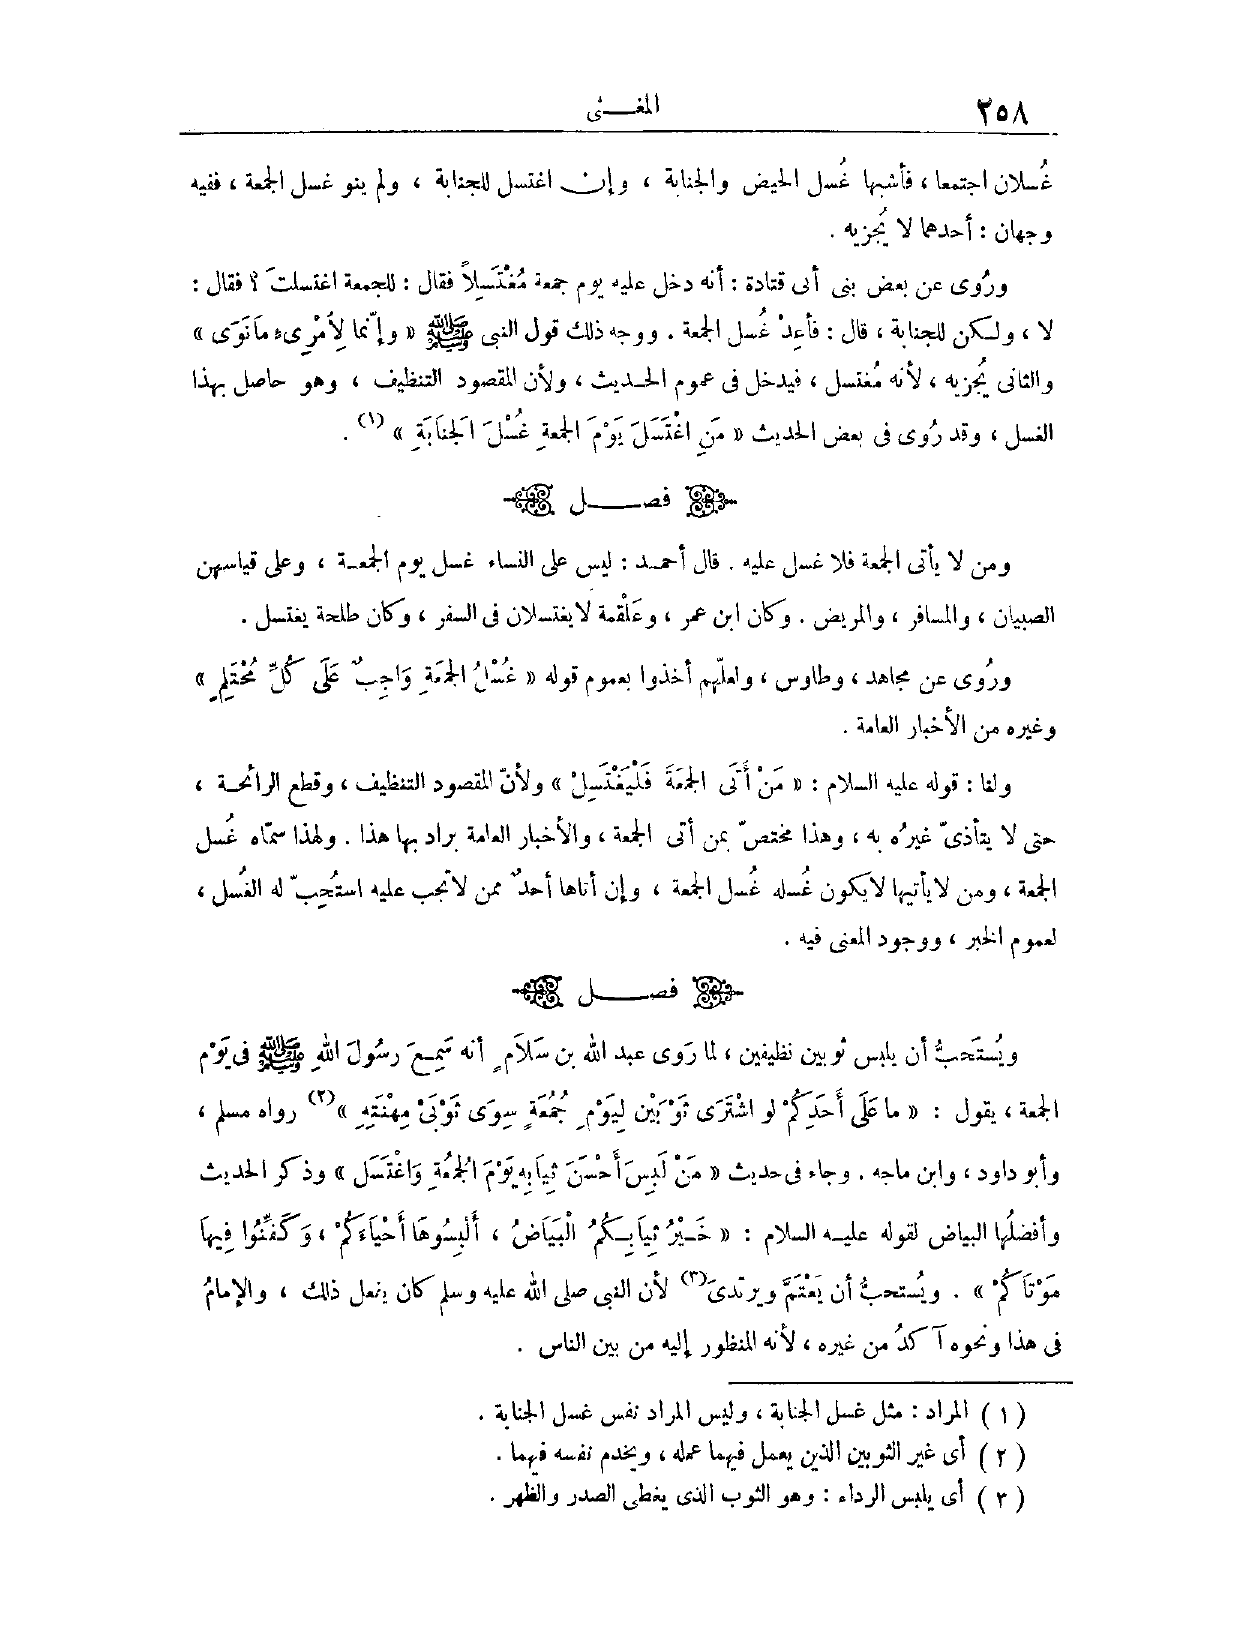 ٢٥٨
المغـــنى
غُسلان اجتمعا ، فأشبها غُسل الحيض والجنابة ، وإن اغتسل للجنابة ، ولم ينو غسل الجمعة ، ففيه
وجهان : أحدهما لا يُجزيه .
ورُوى عن بعض بنى أبى قتادة : أنه دخل عليه يوم جمعة مُغْتَسِلاً فقال : للجمعة اغتسلتَ ؟ فقال :
لا ، ولكن للجنابة ، قال : فأعِدْ غُسل الجمعة . ووجه ذلك قول النبى ﷺ « وإنّما لِأمْرِىءٍ مَانَوَى »
والثانى يُجزيه ، لأنه مُغتسل ، فيدخل فى عموم الحديث ، ولأن المقصود التنظيف ، وهو حاصل بهذا
الغسل ، وقد رُوى فى بعض الحديث « مَنِ اغْتَسَلَ يَوْمَ الجمعةِ غُسْلَ الجَنَابَةِ » (١) .
فصـــل
ومن لا يأتى الجمعة فلا غسل عليه . قال أحمـد : ليس على النساء غسل يوم الجمعـة ، وعلى قياسهن
الصبيان ، والمسافر ، والمريض . وكان ابن عمر ، وعَلْقمة لا يغتسلان فى السفر ، وكان طلحة يغتسل .
ورُوى عن مجاهد ، وطاوس ، ولعلّهم أخذوا بعموم قوله « غُسْلُ الجمَعَةِ وَاجِبٌ عَلَى كُلِّ مُحْتَلِمٍ »
وغيره من الأخبار العامة .
ولنا : قوله عليه السلام : « مَنْ أَتَى الجمَعَةَ فَلْيَغْتَسِلْ » ولأنّ المقصود التنظيف ، وقطع الرائحـة ،
حتى لا يتأذىّ غيرُه به ، وهذا مختصّ بمن أتى الجمعة ، والأخبار العامة يراد بها هذا . ولهذا سمّاه غُسل
الجمعة ، ومن لا يأتيها لا يكون غُسله غُسل الجمعة ، وإن أتاها أحدٌ ممن لا تجب عليه استُحِبّ له الغُسل ،
لعموم الخبر ، ووجود المعنى فيه .
فصـــل
ويُستَحبُّ أن يلبس ثوبين نظيفين ، لما رَوى عبد الله بن سَلَامٍ أنه سَمِـعَ رسُولَ اللهِ ﷺ فى يَوْم
الجمعة ، يقول : « ما عَلَى أَحَدِكُمْ لو اشْتَرَى ثَوْبَيْن لِيَوْمِ جُمُعَةٍ سِوَى ثَوْبَىْ مِهْنَتِهِ »(٢) رواه مسلم ،
وأبو داود ، وابن ماجه . وجاء فى حديث « مَنْ لَبِسَ أَحْسَنَ ثِيَابِه يَوْمَ الجُمُعَةِ وَاغْتَسَل » وذكر الحديث
وأفضلُها البياض لقوله عليـه السلام : « خَـيْرُ ثِيَابِـكُمُ الْبَيَاضُ ، أَلْبِسُوهَا أَحْيَاءَكُمْ ، وَكَفِّنُوا فِيهَا
مَوْتَاكُمْ » . ويُستحبُّ أن يَعْتَمَّ ويرتدىَ(٣) لأن النبى صلى الله عليه وسلم كان يفعل ذلك ، والإمامُ
فى هذا ونحوه آكدُ من غيره ، لأنه المنظور إليه من بين الناس .
( ١ ) المراد : مثل غسل الجنابة ، وليس المراد نفس غسل الجنابة .
( ٢ ) أى غير الثوبين الذين يعمل فيهما عمله ، ويخدم نفسه فيهما .
( ٣ ) أى يلبس الرداء : وهو الثوب الذى يغطى الصدر والظهر .